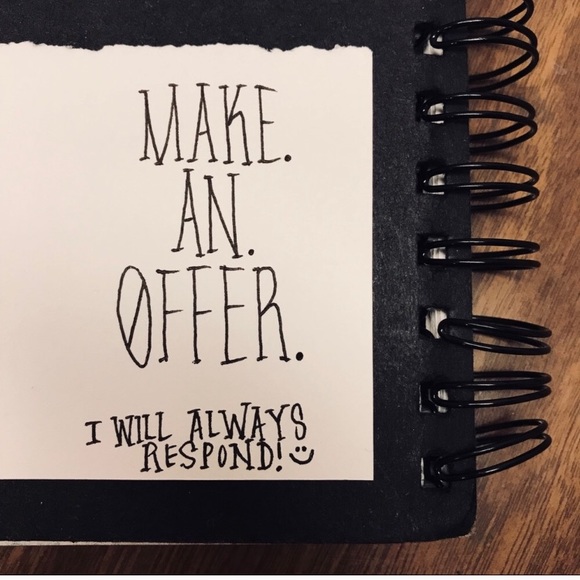 MAKE.
AN.
OFFER.
I WILL ALWAYS
RESPOND! :)